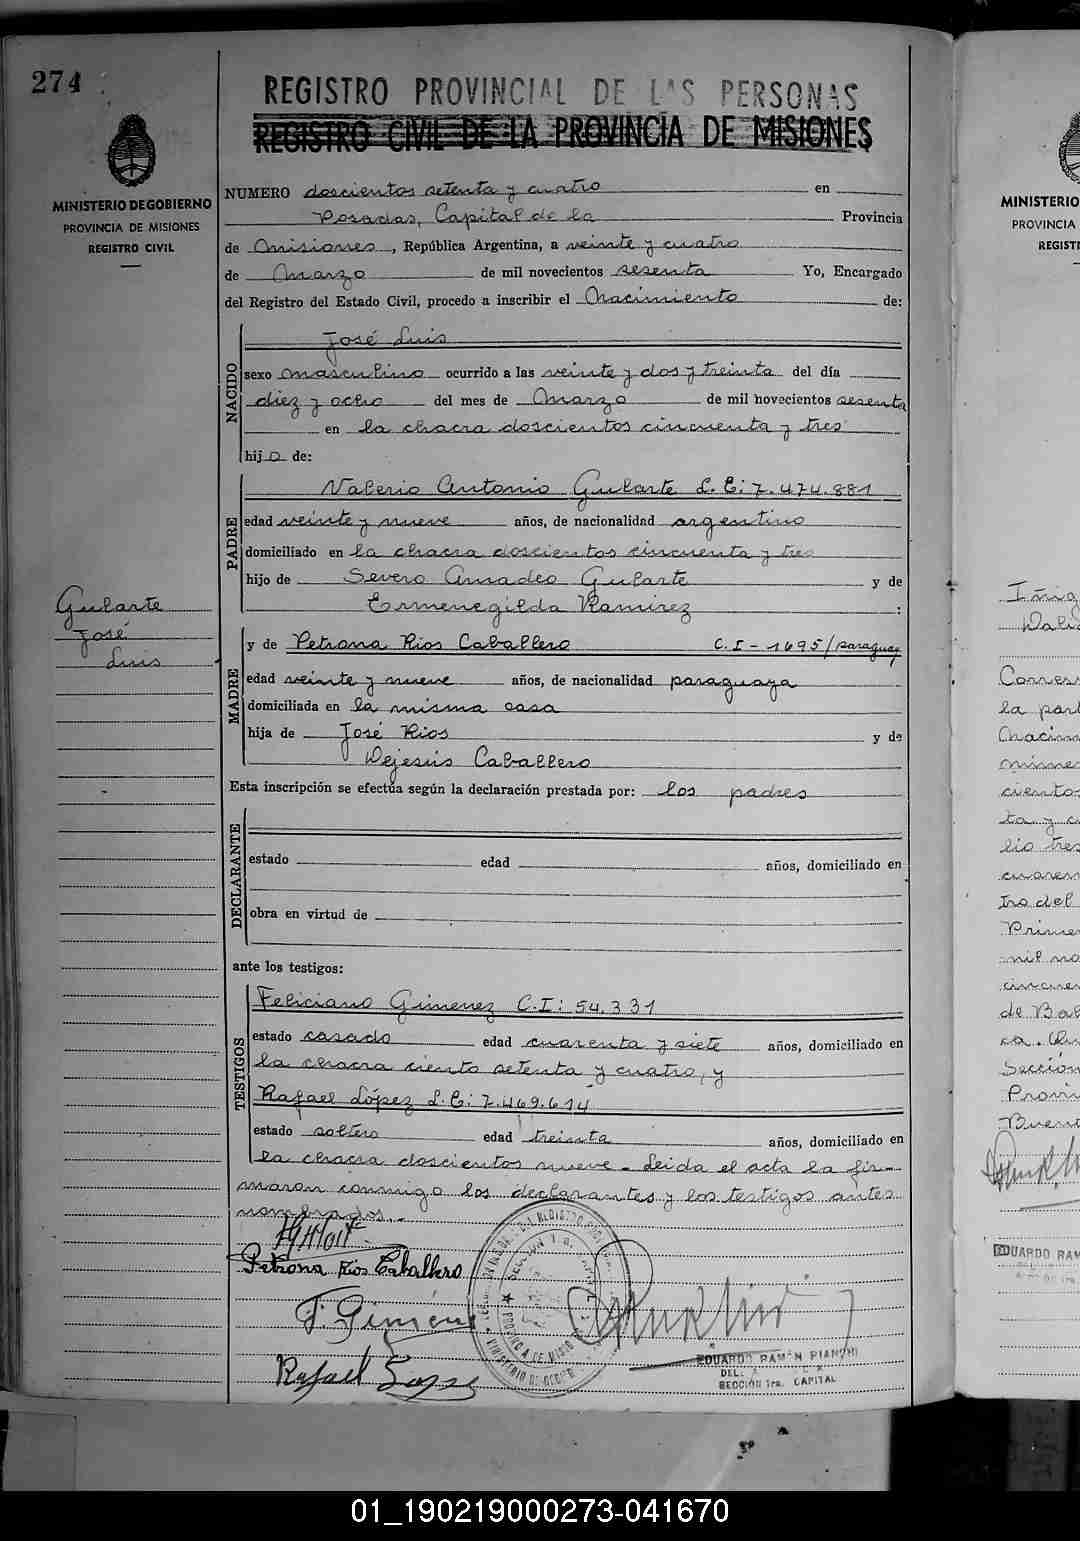 274
REGISTRO PROVINCIAL DE LAS PERSONAS
REGISTRO CIVIL DE LA PROVINCIA DE MISIONES
MINISTERIO DE GOBIERNO
PROVINCIA DE MISIONES
REGISTRO CIVIL
NUMERO doscientos setenta y cuatro en
Posadas, Capital de la Provincia
de Misiones, República Argentina, a veinte y cuatro
de Marzo de mil novecientos sesenta Yo, Encargado
del Registro del Estado Civil, procedo a inscribir el Nacimiento de:
NACIDO
José Luis
sexo masculino ocurrido a las veinte y dos y treinta del día
diez y ocho del mes de Marzo de mil novecientos sesenta
en la chacra doscientos cincuenta y tres
hijo de:
PADRE
Valerio Antonio Gularte L.E: 7.474.881
edad veinte y nueve años, de nacionalidad argentino
domiciliado en la chacra doscientos cincuenta y tres
hijo de Severo Amadeo Gularte y de
Ermenegilda Ramirez :
Gularte
José
Luis
MADRE
y de Petrona Rios Caballero C.I-1695/paraguay
edad veinte y nueve años, de nacionalidad paraguaya
domiciliada en la misma casa
hija de José Rios y de
Dejesús Caballero
Esta inscripción se efectúa según la declaración prestada por: los padres
DECLARANTE
estado edad años, domiciliado en
obra en virtud de
ante los testigos:
TESTIGOS
Feliciano Gimenez C.I: 54.331
estado casado edad cuarenta y siete años, domiciliado en
la chacra ciento setenta y cuatro, y
Rafael López L.E: 7.469.614
estado soltero edad treinta años, domiciliado en
la chacra doscientos nueve. Leida el acta la fir-
maron conmigo los declarantes y los testigos antes
nombrados.
Petrona Rios Caballero
F. Gimenez
Rafael Lopez
EDUARDO RAMON PIANCHI
DEL.
SECCIÓN 1ra. CAPITAL
MINISTERIO
PROVINCIA
REGIST
Iñig
la part
mil no
de Ba
Sección
Provi
EDUARDO RAM
01_190219000273-041670